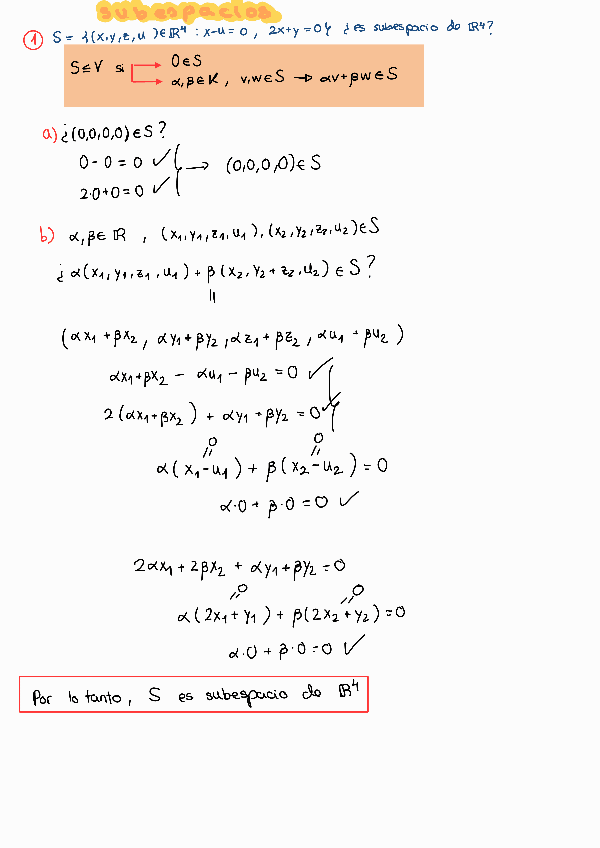 subespacios
1 S = {(x,y,z,u) ∈ ℝ⁴ : x-u=0, 2x+y=0} ¿es subespacio de ℝ⁴?
S ≤ V si → 0 ∈ S
→ α,β ∈ K, v,w ∈ S → αv+βw ∈ S
a) ¿(0,0,0,0) ∈ S?
0-0=0 ✓
2·0+0=0 ✓ } → (0,0,0,0) ∈ S
b) α,β ∈ ℝ, (x₁,y₁,z₁,u₁),(x₂,y₂,z₂,u₂) ∈ S
¿α(x₁,y₁,z₁,u₁) + β(x₂,y₂+z₂,u₂) ∈ S?
=
(αx₁+βx₂, αy₁+βy₂, αz₁+βz₂, αu₁+βu₂)
αx₁+βx₂ - αu₁ - βu₂ = 0 ✓
2(αx₁+βx₂) + αy₁+βy₂ = 0 ✓
0 0
= =
α(x₁-u₁) + β(x₂-u₂) = 0
α·0 + β·0 = 0 ✓
2αx₁+2βx₂ + αy₁+βy₂ = 0
=0 =0
α(2x₁+y₁) + β(2x₂+y₂) = 0
α·0 + β·0 = 0 ✓
Por lo tanto, S es subespacio de ℝ⁴